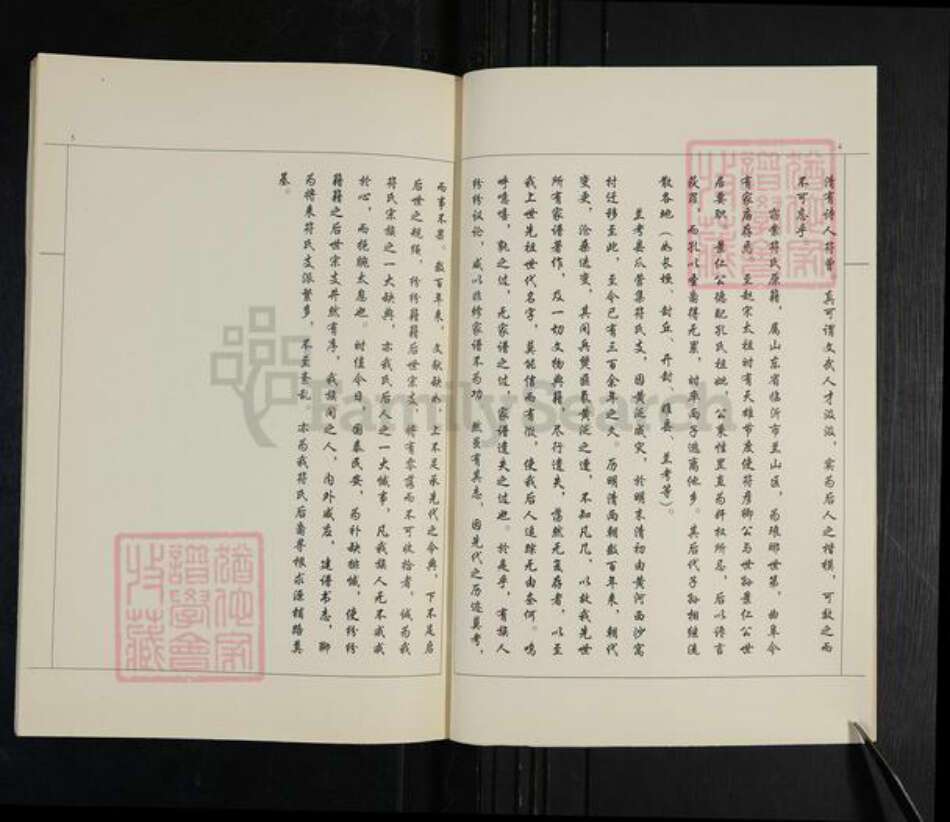 4
清有诗人符曾，真可谓文武人才汲汲，实为后人之楷模，可敬之而
不可忘乎
窃索符氏原籍，属山东省临沂市兰山区，为琅琊世第，曲阜今
有家庙存焉。至赵宋太祖时有天雄节度使符彦卿公与世孙景仁公世
居要职，景仁公德配孔氏祖妣，公秉性罡直为奸权所忌，后以谗言
获罪，而孔以圣裔得无累，时率两子逃离他乡。其后代子孙相继流
散各地（如长垣、封丘、开封、睢县、兰考等）。
兰考县瓜营集符氏支，因黄泛成灾，於明末清初由黄河西沙窝
村迁移至此，至今已有三百余年之久。历明清两朝数百年来，朝代
变更，沧桑迭变，其间兵燹匪氛黄泛之遭，不知凡几，以致我先世
所有家谱著作，及一切文物典籍，尽行遗失，荡然无复存者，以至
我上世先祖世代名字，莫能信而有徵，使我后人追踪无由奈何。呜
呼噫嘻，孰之过，无家谱之过，家谱遗失之过也。於是乎，有族人
纷纷议论，咸以非修家谱不为功，然虽有其志，因先代之历迹莫考，
5
而事不果。数百年来，文献缺如，上不足承先代之令典，下不足启
后世之规绳，纷纷籍籍后世宗支，将有零落而不可收拾者，诚为我
符氏宗族之一大缺典，亦我氏后人之一大憾事，凡我族人无不戚戚
於心，而挽腕太息也。时值今日，国泰民安，为补缺排憾，使纷纷
籍籍之后世宗支井然有序，我族间之人，内外咸应，建谱书志，聊
为将来符氏支派繁多，不至紊乱。亦为我符氏后裔寻根求源梢路奠
基。
猶他家
譜學會
收藏
猶他家
譜學會
收藏
FamilySearch